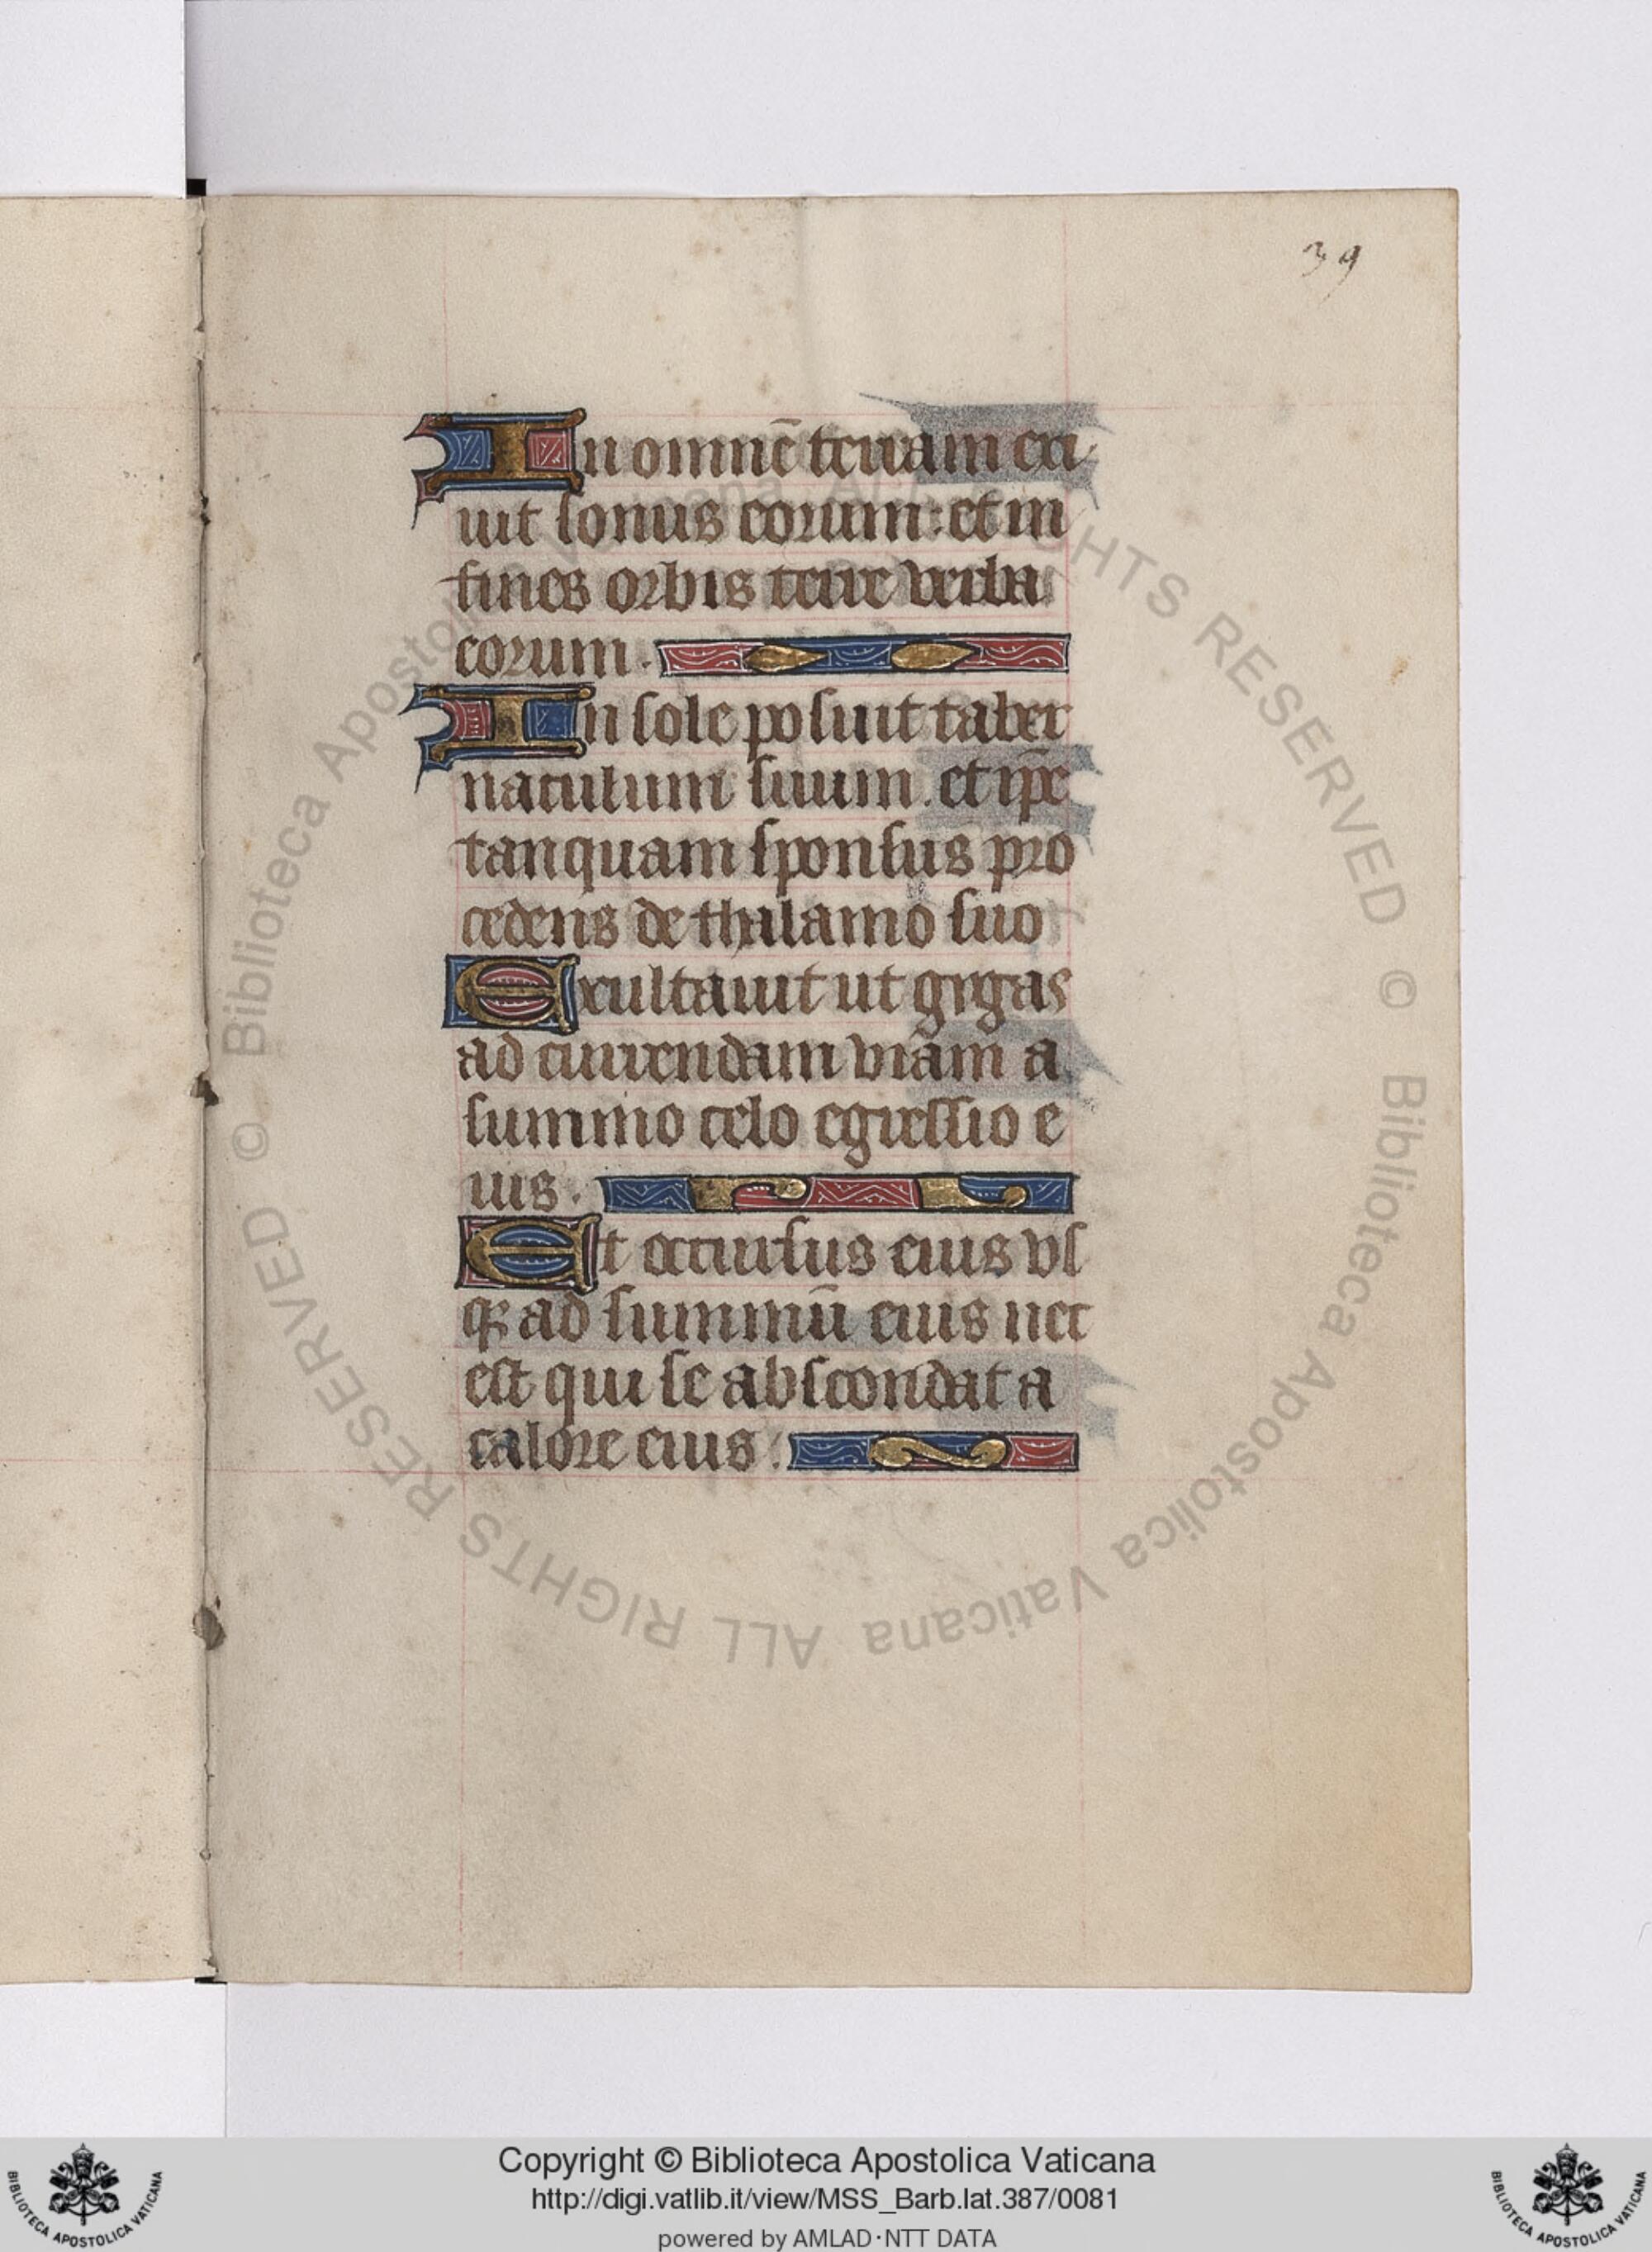 39
In omnē terram exi
uit sonus eorum: et in
fines orbis terre verba
eorum.
In sole posuit taber
naculum suum. et ip̄e
tanquam sponsus pro
cedens de thalamo suo
Exultauit ut gygas
ad currendam viam a
summo celo egressio e
ius.
Et occursus eius vs
q; ad summū eius nec
est qui se abscondat a
calore eius.
© Biblioteca Apostolica Vaticana ALL RIGHTS RESERVED © Biblioteca Apostolica Vaticana ALL RIGHTS RESERVED
Copyright © Biblioteca Apostolica Vaticana
http://digi.vatlib.it/view/MSS_Barb.lat.387/0081
powered by AMLAD·NTT DATA
BIBLIOTECA APOSTOLICA VATICANA
BIBLIOTECA APOSTOLICA VATICANA